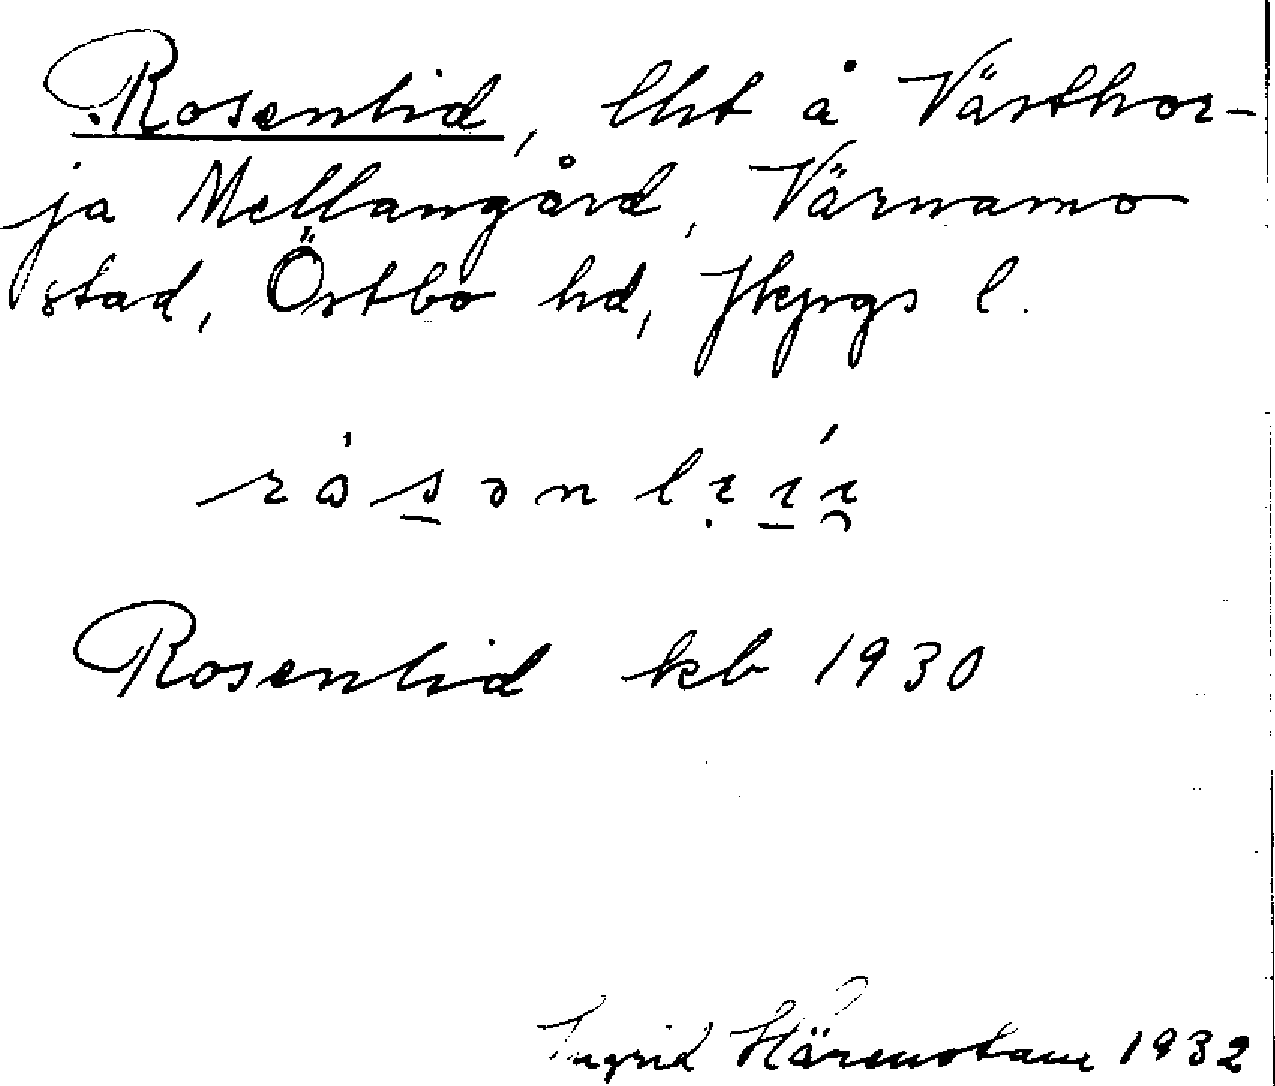 Rosenlid, lht å Västhor-
ja Mellangård, Värnamo
stad, Östbo hd, Jkpgs l.
Rosenlid kb 1930
Ingrid 1932